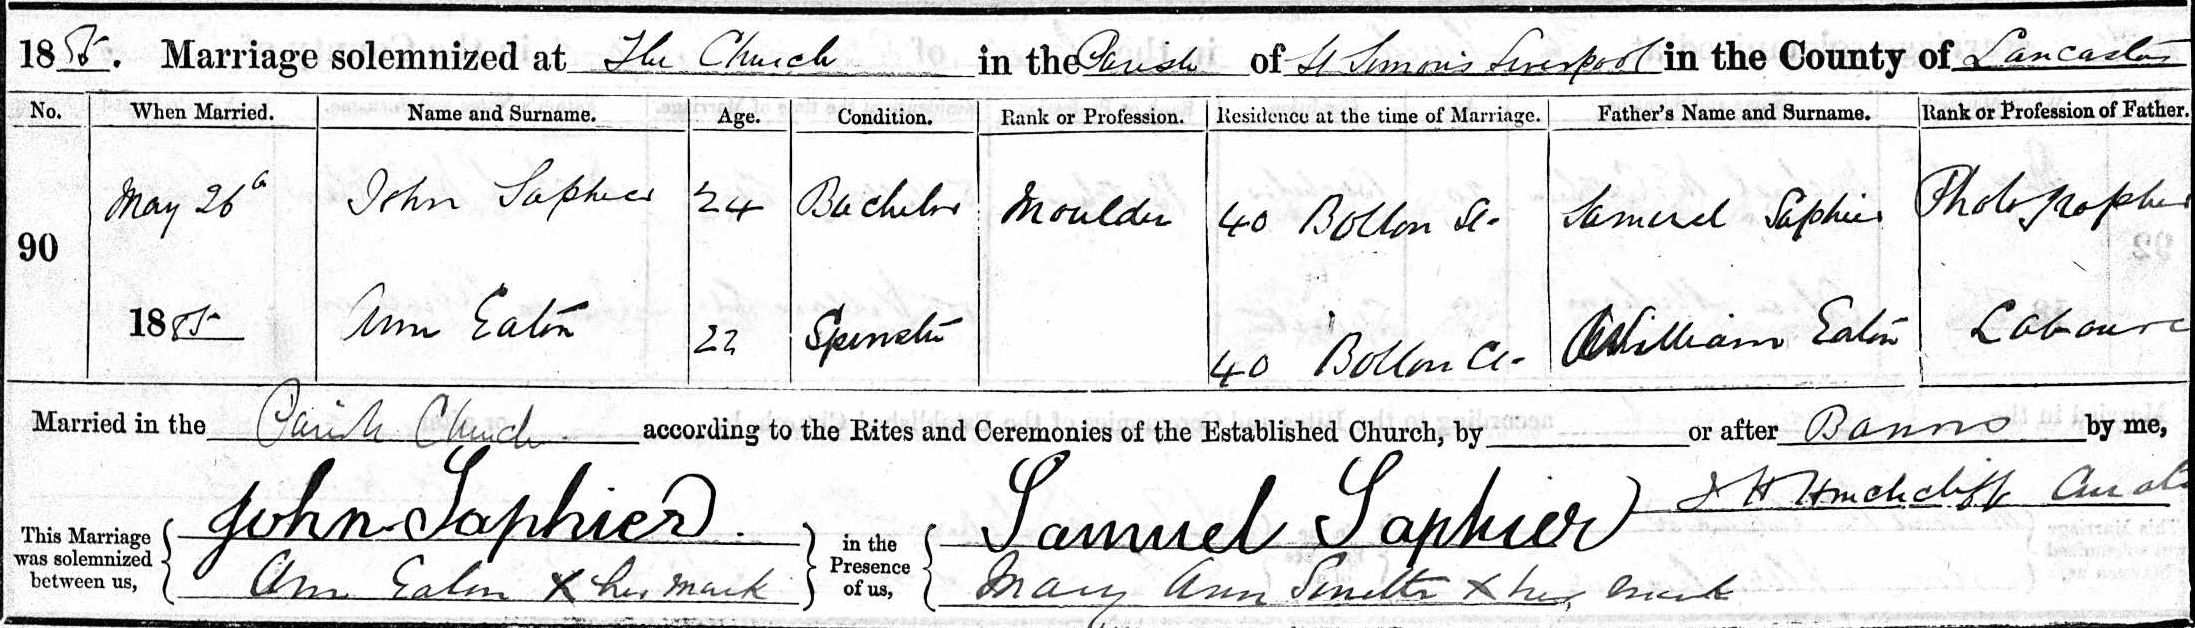 1885. Marriage solemnized at The Church in the Parish of St Simon's Liverpool in the County of Lancaster
No. When Married. Name and Surname. Age. Condition. Rank or Profession. Residence at the time of Marriage. Father's Name and Surname. Rank or Profession of Father.
May 26th John Saphier 24 Bachelor Moulder 40 Bolton St. Samuel Saphier Photographer
90
1885 Ann Eaton 22 Spinster 40 Bolton St. William Eaton Labourer
Married in the Parish Church according to the Rites and Ceremonies of the Established Church, by or after Banns by me,
J H Hinchcliff Curate
This Marriage was solemnized between us, John Saphier in the Presence of us, Samuel Saphier
Ann Eaton X her mark Mary Ann X her mark